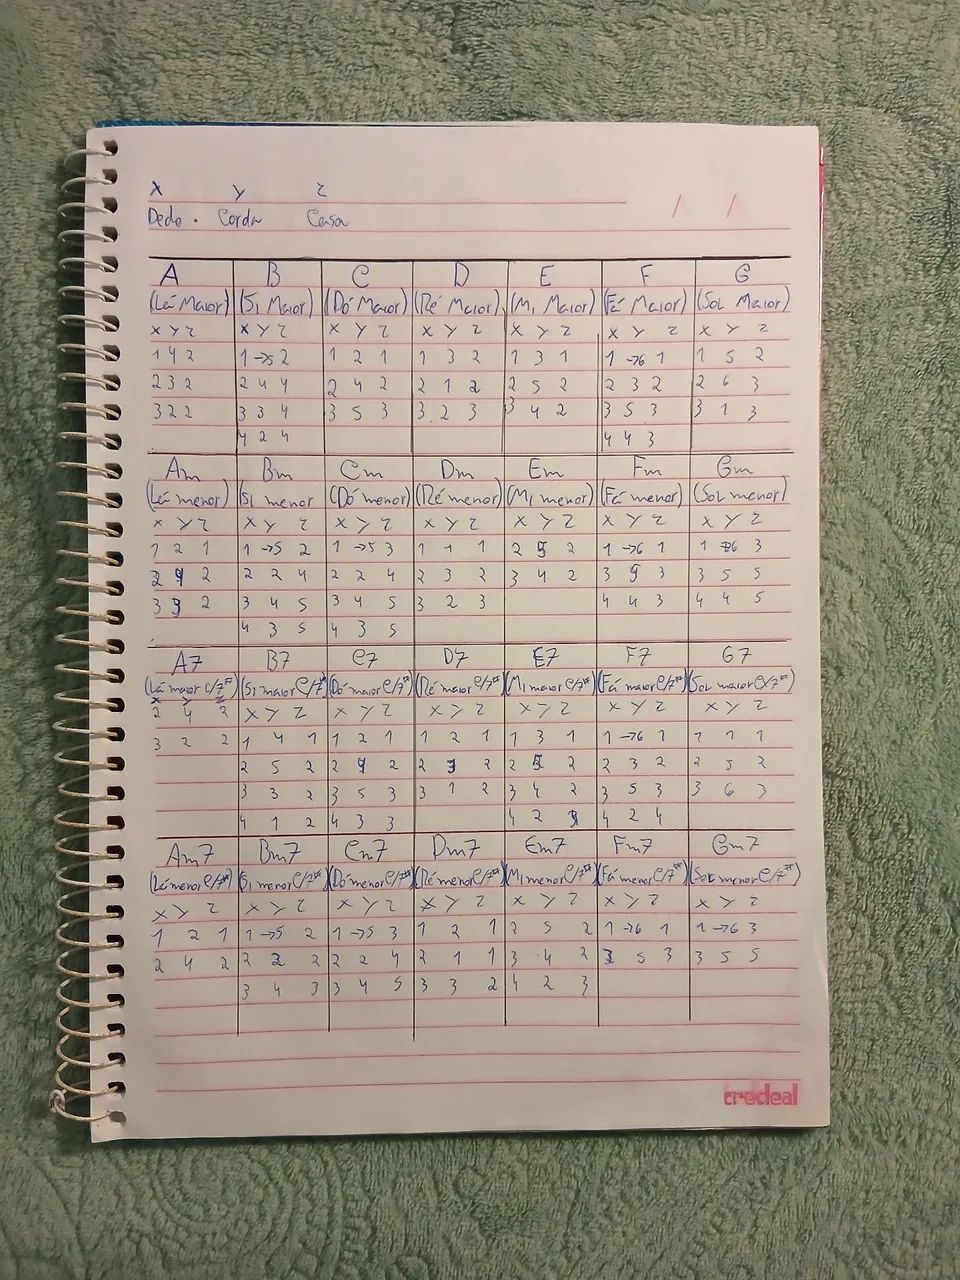 x y z
Dedo . Corda Casa
A B C D E F G
(Lá Maior) (Si Maior) (Dó Maior) (Ré Maior) (Mi Maior) (Fá Maior) (Sol Maior)
x y z x y z x y z x y z x y z x y z x y z
1 4 2 1 →5 2 1 2 1 1 3 2 1 3 1 1 →6 1 1 5 2
2 3 2 2 4 4 2 4 2 2 1 2 2 5 2 2 3 2 2 6 3
3 2 2 3 3 4 3 5 3 3 2 3 3 4 2 3 5 3 3 1 3
4 2 4 4 4 3
Am Bm Cm Dm Em Fm Gm
(Lá menor) (Si menor (Dó menor) (Ré menor) (Mi menor) (Fá menor) (Sol menor)
x y z x y z x y z x y z x y z x y z x y z
1 2 1 1 →5 2 1 →5 3 1 1 1 2 5 2 1 →6 1 1 →6 3
2 4 2 2 2 4 2 2 4 2 3 2 3 4 2 3 5 3 3 5 5
3 3 2 3 4 5 3 4 5 3 2 3 4 4 3 4 4 5
4 3 5 4 3 5
A7 B7 C7 D7 E7 F7 G7
(Lá maior c/7ª) (Si maior c/7ª) (Dó maior c/7ª) (Ré maior c/7ª) (Mi maior c/7ª) (Fá maior c/7ª) (Sol maior c/7ª)
x y z x y z x y z x y z x y z x y z x y z
2 4 2
3 2 2 1 4 1 1 2 1 1 2 1 1 3 1 1 →6 1 1 1 1
2 5 2 2 4 2 2 3 2 2 5 2 2 3 2 2 5 2
3 3 2 3 5 3 3 1 2 3 4 2 3 5 3 3 6 3
4 1 2 4 3 3 4 2 3 4 2 4
Am7 Bm7 Cm7 Dm7 Em7 Fm7 Gm7
(Lá menor c/7ª) (Si menor c/7ª) (Dó menor c/7ª) (Ré menor c/7ª) (Mi menor c/7ª) (Fá menor c/7ª) (Sol menor c/7ª)
x y z x y z x y z x y z x y z x y z x y z
1 2 1 1 →5 2 1 →5 3 1 2 1 2 5 2 1 →6 1 1 →6 3
2 4 2 2 2 2 2 2 4 2 1 1 3 4 2 3 5 3 3 5 5
3 4 3 3 4 5 3 3 2 4 2 3
credeal